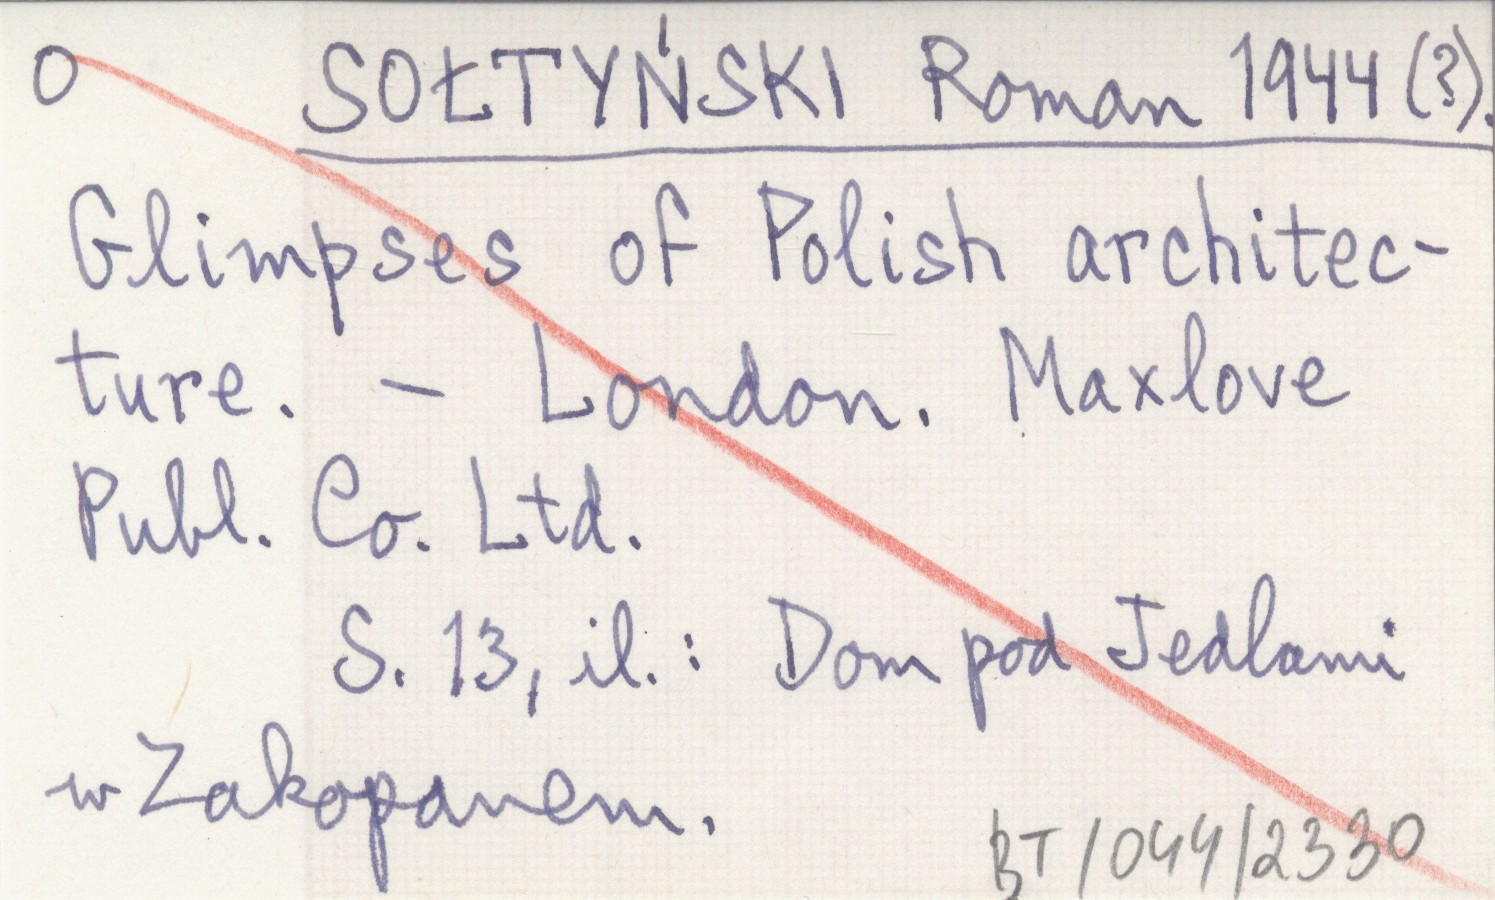 O SOŁTYŃSKI Roman 1944 (?).
Glimpses of Polish architec-
ture. – London. Maxlove
Publ. Co. Ltd.
S. 13, il.: Dom pod Jedlami
w Zakopanem.
BT/044/2330